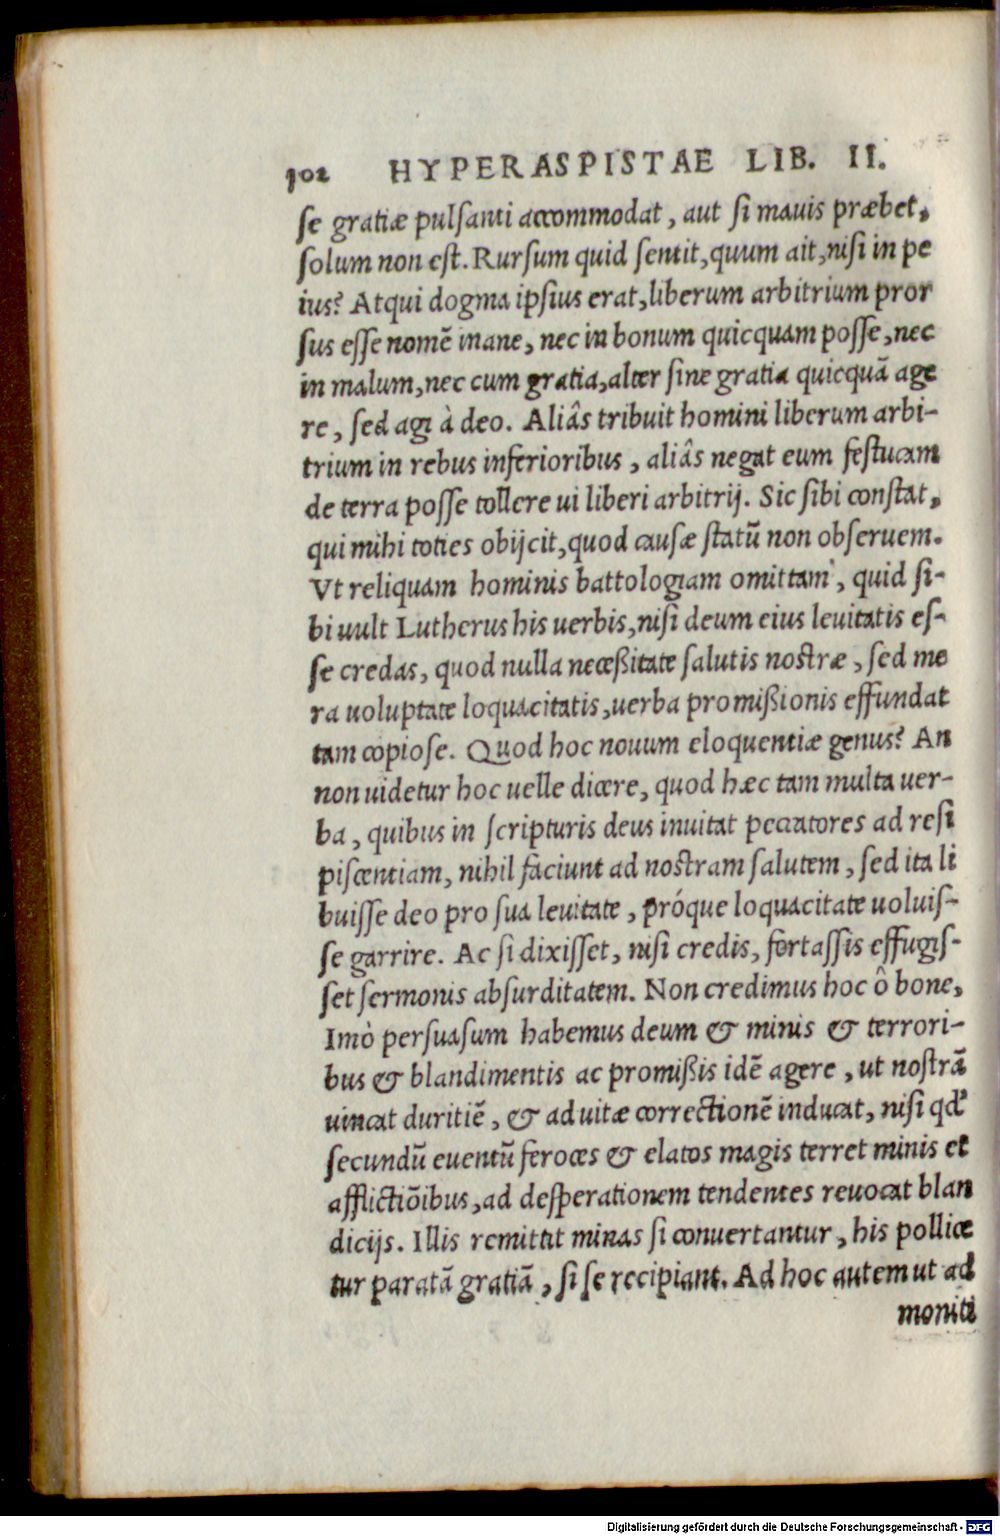 102 HYPERASPISTAE LIB. II.
se gratiæ pulsanti accommodat, aut si mauis præbet,
solum non est. Rursum quid sentit, quum ait, nisi in pe
ius? Atqui dogma ipsius erat, liberum arbitrium pror
sus esse nomẽ inane, nec in bonum quicquam posse, nec
in malum, nec cum gratia, alter sine gratia quicquã age
re, sed agi à deo. Aliâs tribuit homini liberum arbi-
trium in rebus inferioribus, aliâs negat eum festucam
de terra posse tollere ui liberi arbitrij. Sic sibi constat,
qui mihi toties obijcit, quod causæ statũ non obseruem.
Vt reliquam hominis battologiam omittam, quid si-
bi uult Lutherus his uerbis, nisi deum eius leuitatis es-
se credas, quod nulla neceßitate salutis nostræ, sed me
ra uoluptate loquacitatis, uerba promißionis effundat
tam copiose. Quod hoc nouum eloquentiæ genus? An
non uidetur hoc uelle dicere, quod hæc tam multa uer-
ba, quibus in scripturis deus inuitat peccatores ad resi
piscentiam, nihil faciunt ad nostram salutem, sed ita li
buisse deo pro sua leuitate, próque loquacitate uoluis-
se garrire. Ac si dixisset, nisi credis, fortassis effugis-
set sermonis absurditatem. Non credimus hoc ô bone,
Imò persuasum habemus deum & minis & terrori-
bus & blandimentis ac promißis idẽ agere, ut nostrã
uincat duritiẽ, & ad uitæ correctionẽ inducat, nisi qd'
secundũ euentũ feroces & elatos magis terret minis et
afflictiõibus, ad desperationem tendentes reuocat blan
dicijs. Illis remittit minas si conuertantur, his pollice
tur paratã gratiã, si se recipiant. Ad hoc autem ut ad
moniti
Digitalisierung gefördert durch die Deutsche Forschungsgemeinschaft - DFG